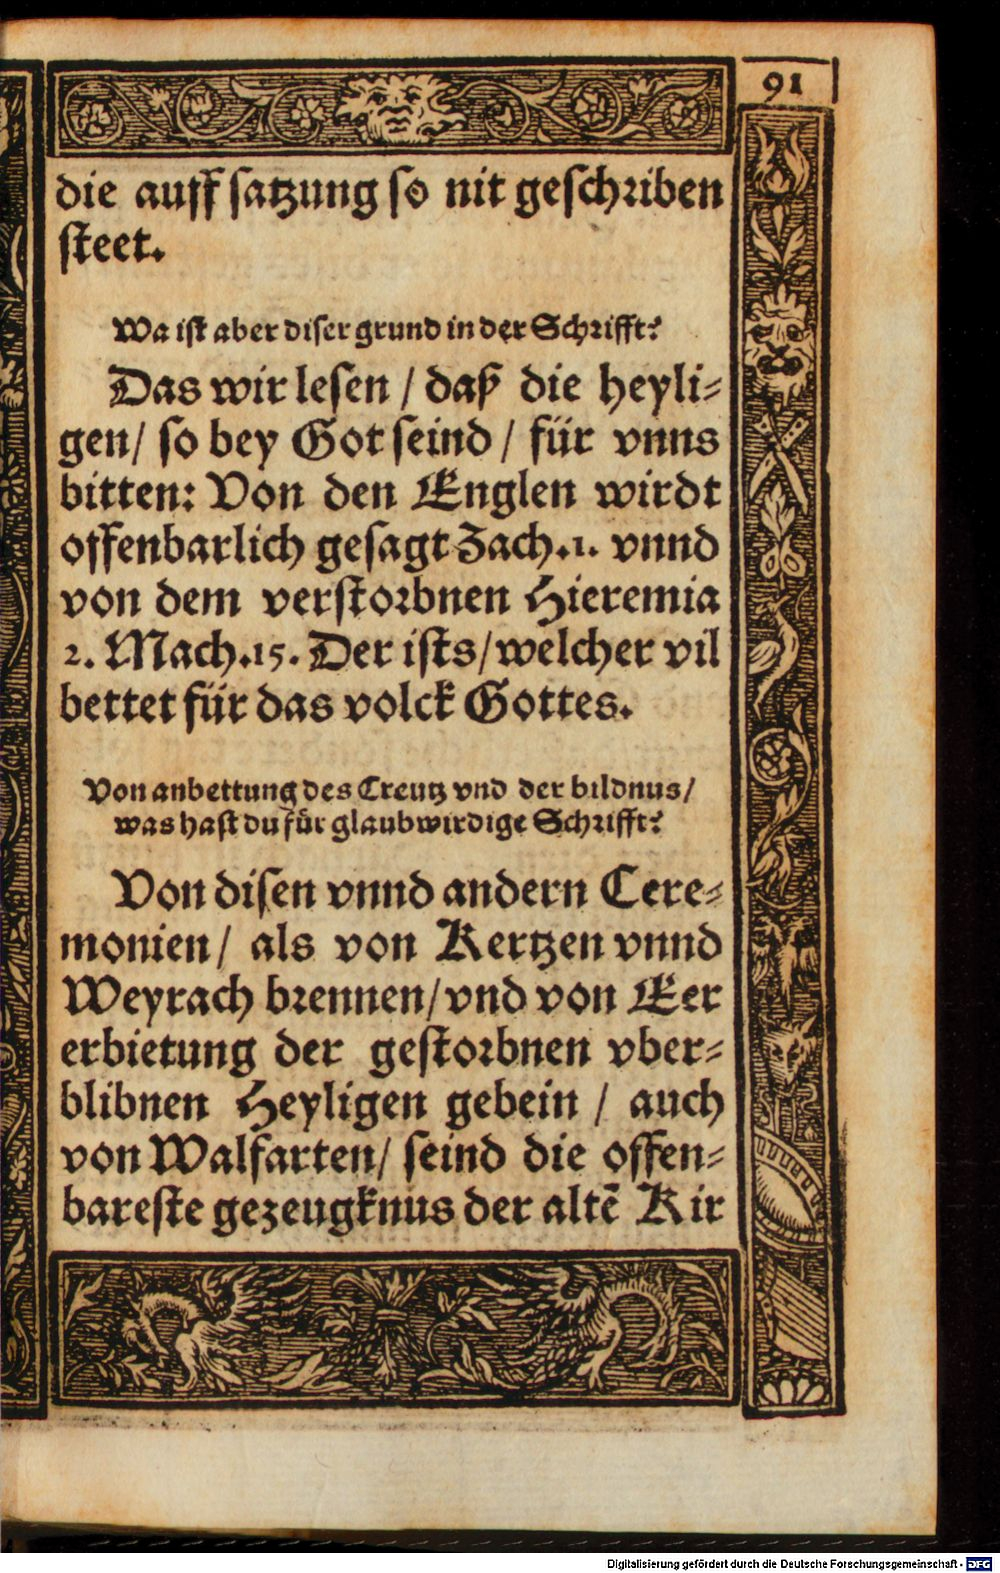 91
die auff satzung so nit geschriben
steet.
Wa ist aber diser grund in der Schrifft?
Das wir lesen / daß die heyli-
gen / so bey Got seind / für vnns
bitten: Von den Englen wirdt
offenbarlich gesagt Zach.1. vnnd
von dem verstorbnen Hieremia
2. Mach.15. Der ists / welcher vil
bettet für das volck Gottes.
Von anbettung des Creutz vnd der bildnus /
was hast du für glaubwirdige Schrifft?
Von disen vnnd andern Cere-
monien / als von Kertzen vnnd
Weyrach brennen / vnd von Eer
erbietung der gestorbnen vber-
blibnen Heyligen gebein / auch
von Walfarten / seind die offen-
bareste gezeugknus der altẽ Kir
Digitalisierung gefördert durch die Deutsche Forschungsgemeinschaft - DFG